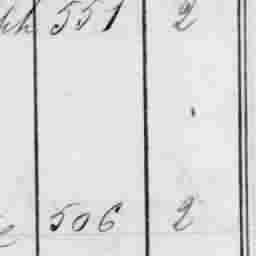 551 2
506 2